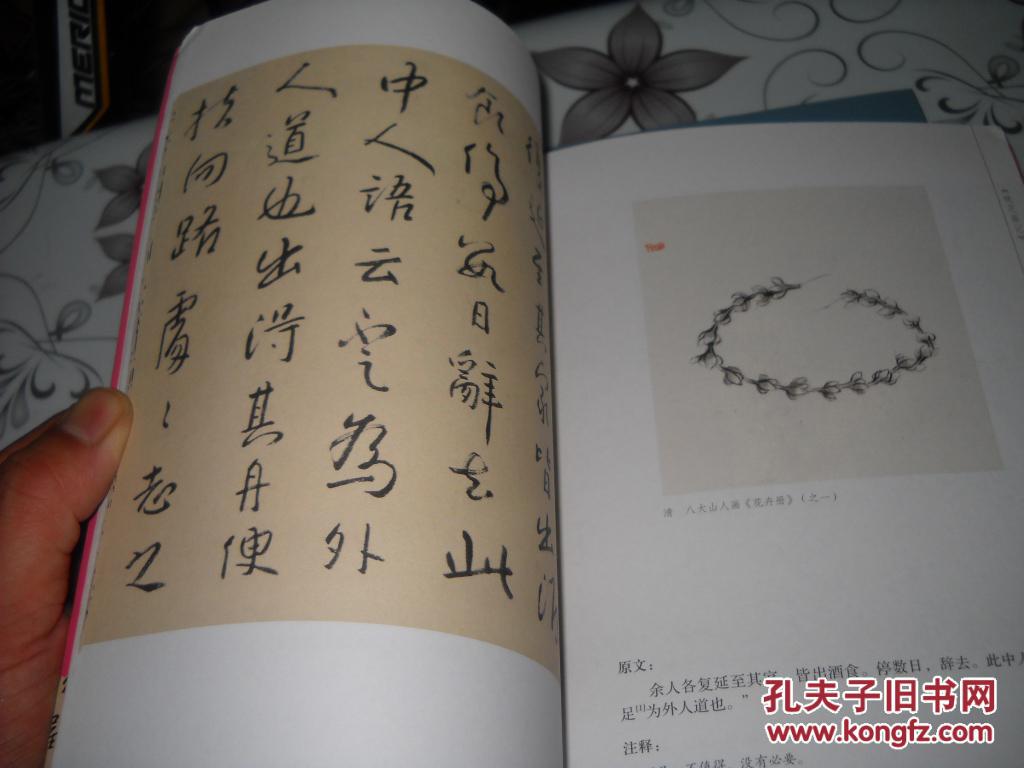 復延至其家皆出酒
食停數日辭去此
中人語云不足為外
人道也出得其舟便
扶向路處〻志之
清 八大山人画《花卉册》(之一)
原文:
余人各复延至其家,皆出酒食。停数日,辞去。此中人
足[1]为外人道也。”
注释:
不值得,没有必要。
孔夫子旧书网
www.kongfz.com